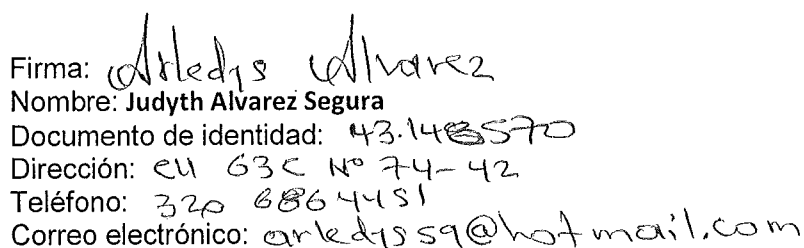 Firma: Arledys Alvarez
Nombre: Judyth Alvarez Segura
Documento de identidad: 43.148570
Dirección: Cll 63C Nº 74-42
Teléfono: 320 6864451
Correo electrónico: arledyssq@hotmail.com